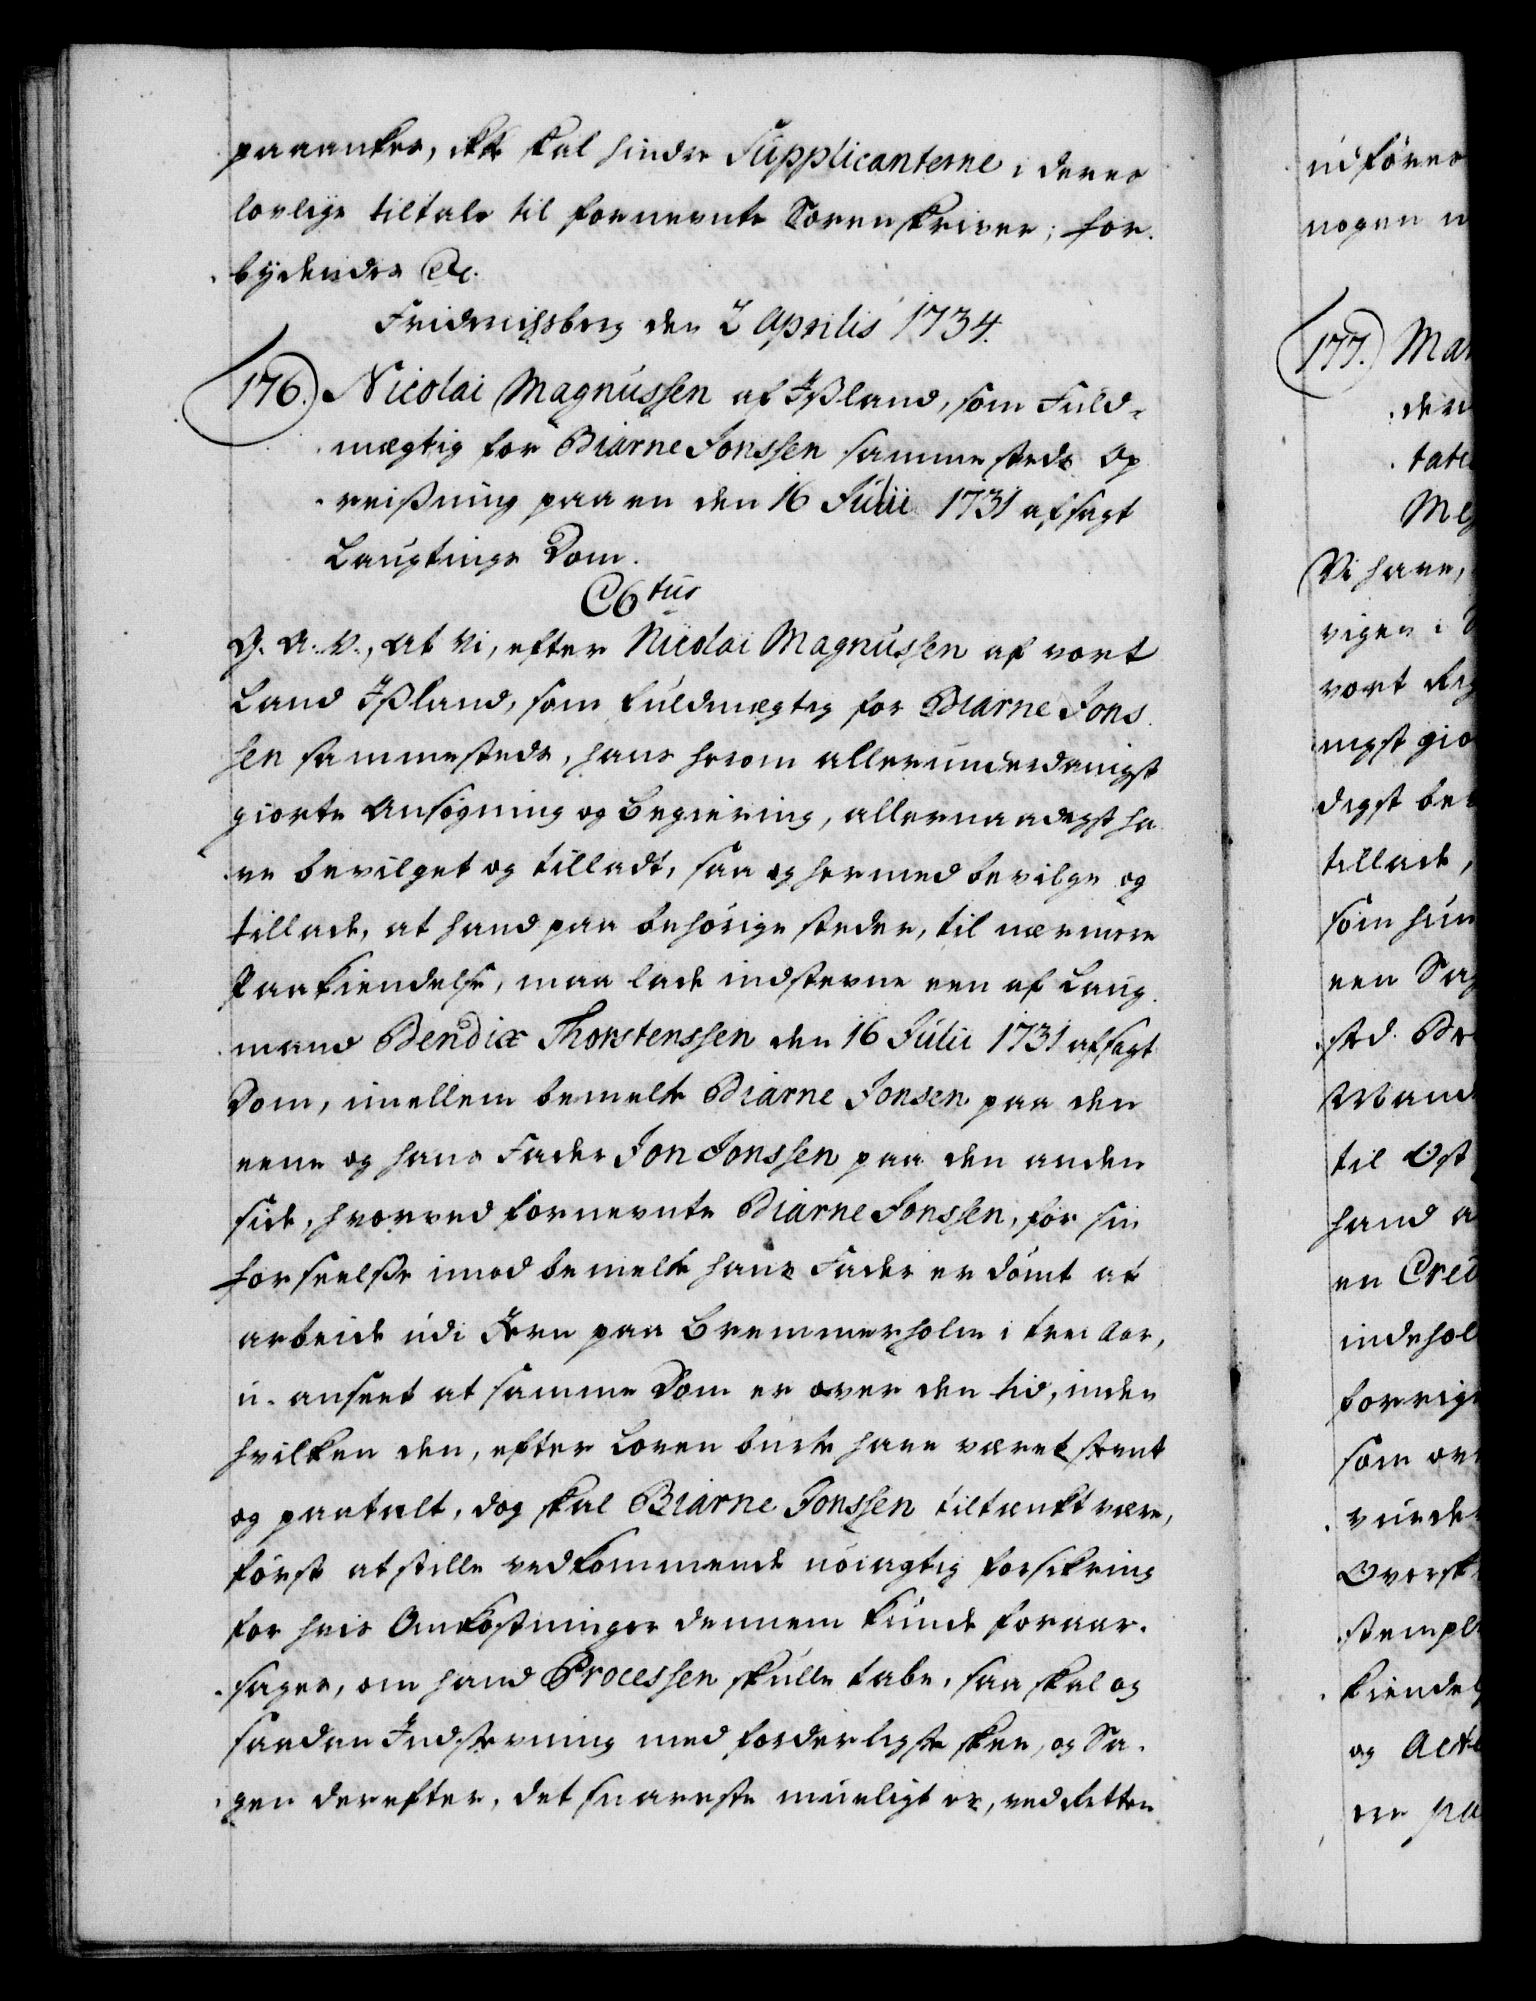 paaankes, ikke skal hindre Supplicanterne i deres
lovlige tiltale til fornevnte Sorenskriver; for-
bydendes &c.
Friderichsberg den 2 Aprilis 1734.
176. Nicolai Magnussen af Ißland, som Fuld-
mægtig for Biarne Jonssen sammesteds Op
reißning paa en den 16 Julii 1731 afsagt
Laugtings Dom.
C6tus
G. A. V., at vi, efter Nicolai Magnussen af vort
Land Ißland, som fuldmægtig for Biarne Jons-
sen sammesteds, hans herom allerunderdanigst
giorte Ansøgning og Begiering, allernaadigst ha-
ve bevilget og tilladt, saa og hermed bevilge og
tillade, at hand paa behörige steder, til nærmere
Paakiendelse, maa lade indstevne een af Laug-
mand Bendix Thorstenssen den 16 Julii 1731 afsagt
Dom, imellem bemelte Biarne Jonsen paa den
eene og hans Fader Jon Jonssen paa den anden
side, hvorved fornevnte Biarne Jonssen, for sin
forseelße imod bemelte hans Fader er dömt at
arbeide udi Jern paa Bremmerholm i trei Aar,
u-anseet at samme Dom er over den tid, inden
hvilken den, efter Loven burte have været stevnt
og paatalt, dog skal Biarne Jonssen tiltænkt være,
först at stille vedkommende nöiagtig forsikring
for hvis Omkostninger dennem kunde foraar-
sages, om hand Processen skulle tabe, saa skal og
saadan Indstevning med forderligste skee, og Sa-
gen derefter, det snareste mueligt er, ved Retten
udföres
nogen
177.
den
Vi have,
vigen i
vort
digst
tillade,
som hun
een Sag
til Ost
hand
en
indehol
forrige
som
og